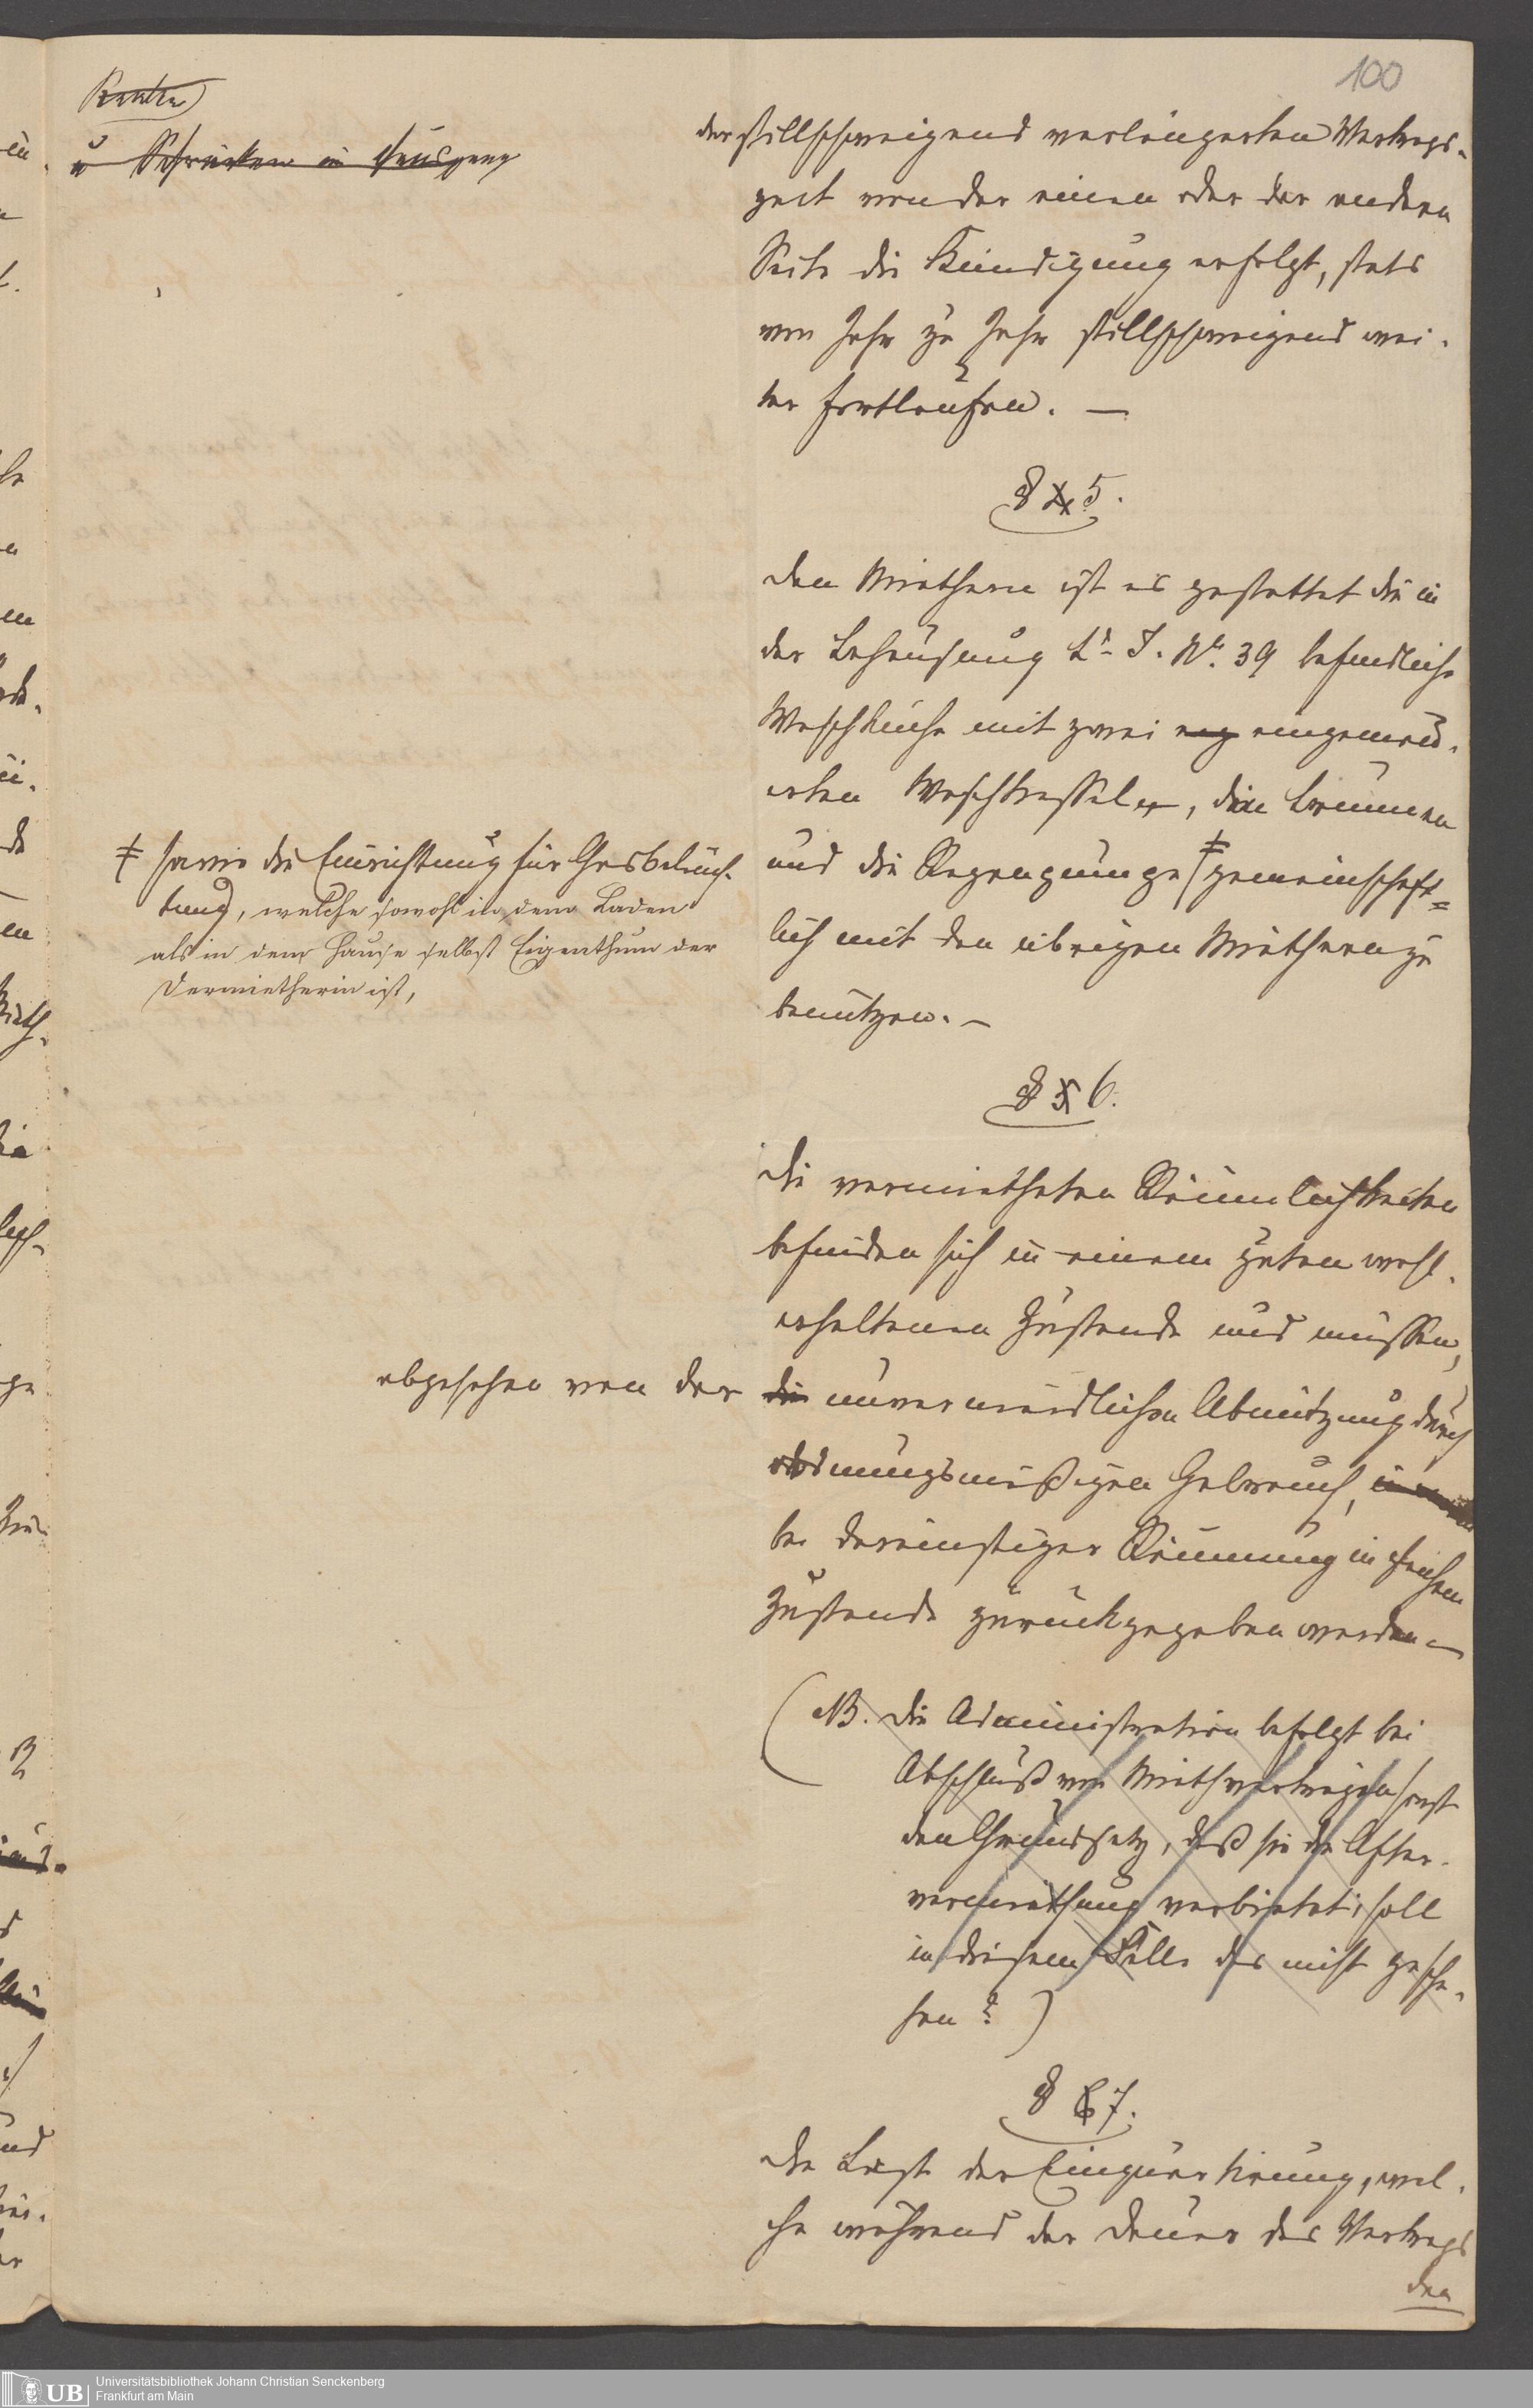 100
u Schränken im Hausgang
der stillschweigend verlängerten Vertrags-
zeit von der einen oder der andern
Seite die Kündigung erfolgt, stets
von Jahr zu Jahr stillschweigend wei-
ter fortlaufen. —
§ 4 5.
Den Miethern ist es gestattet die in
der Behausung Lr. J. No. 39 befindliche
Waschküche mit zwei eingemau-
erten Waschkesseln, den Brunnen
und die Regenpumpe ǂ gemeinschaft=
lich mit den übrigen Miethern zu
benützen. —
ǂ sowie die Einrichtung für Gasbeleuch-
tung, welche sowohl in dem Laden
als in dem Hause selbst Eigenthum der
Vermietherin ist,
§ 5 6.
Die vermietheten Räumlichkeiten
befinden sich in einem guten wohl-
erhaltenen Zustande und müssen,
abgesehen von der die unvermeidlichen Abnützung durch
ordnungsmäßigen Gebrauch,
bei dereinstiger Räumung in solchem
Zustande zurückgegeben werden —
(NB. Die Administration befolgt bei
Abschluß von Miethverträgen sonst
den Grundsatz, daß sie die After-
vermiethung verbietet; soll
in diesem Falle das nicht gesche-
hen?)
§ 6 7.
Die Last der Einquartierung, wel-
che während der Dauer des Vertrags
den
Universitätsbibliothek Johann Christian Senckenberg
UB Frankfurt am Main